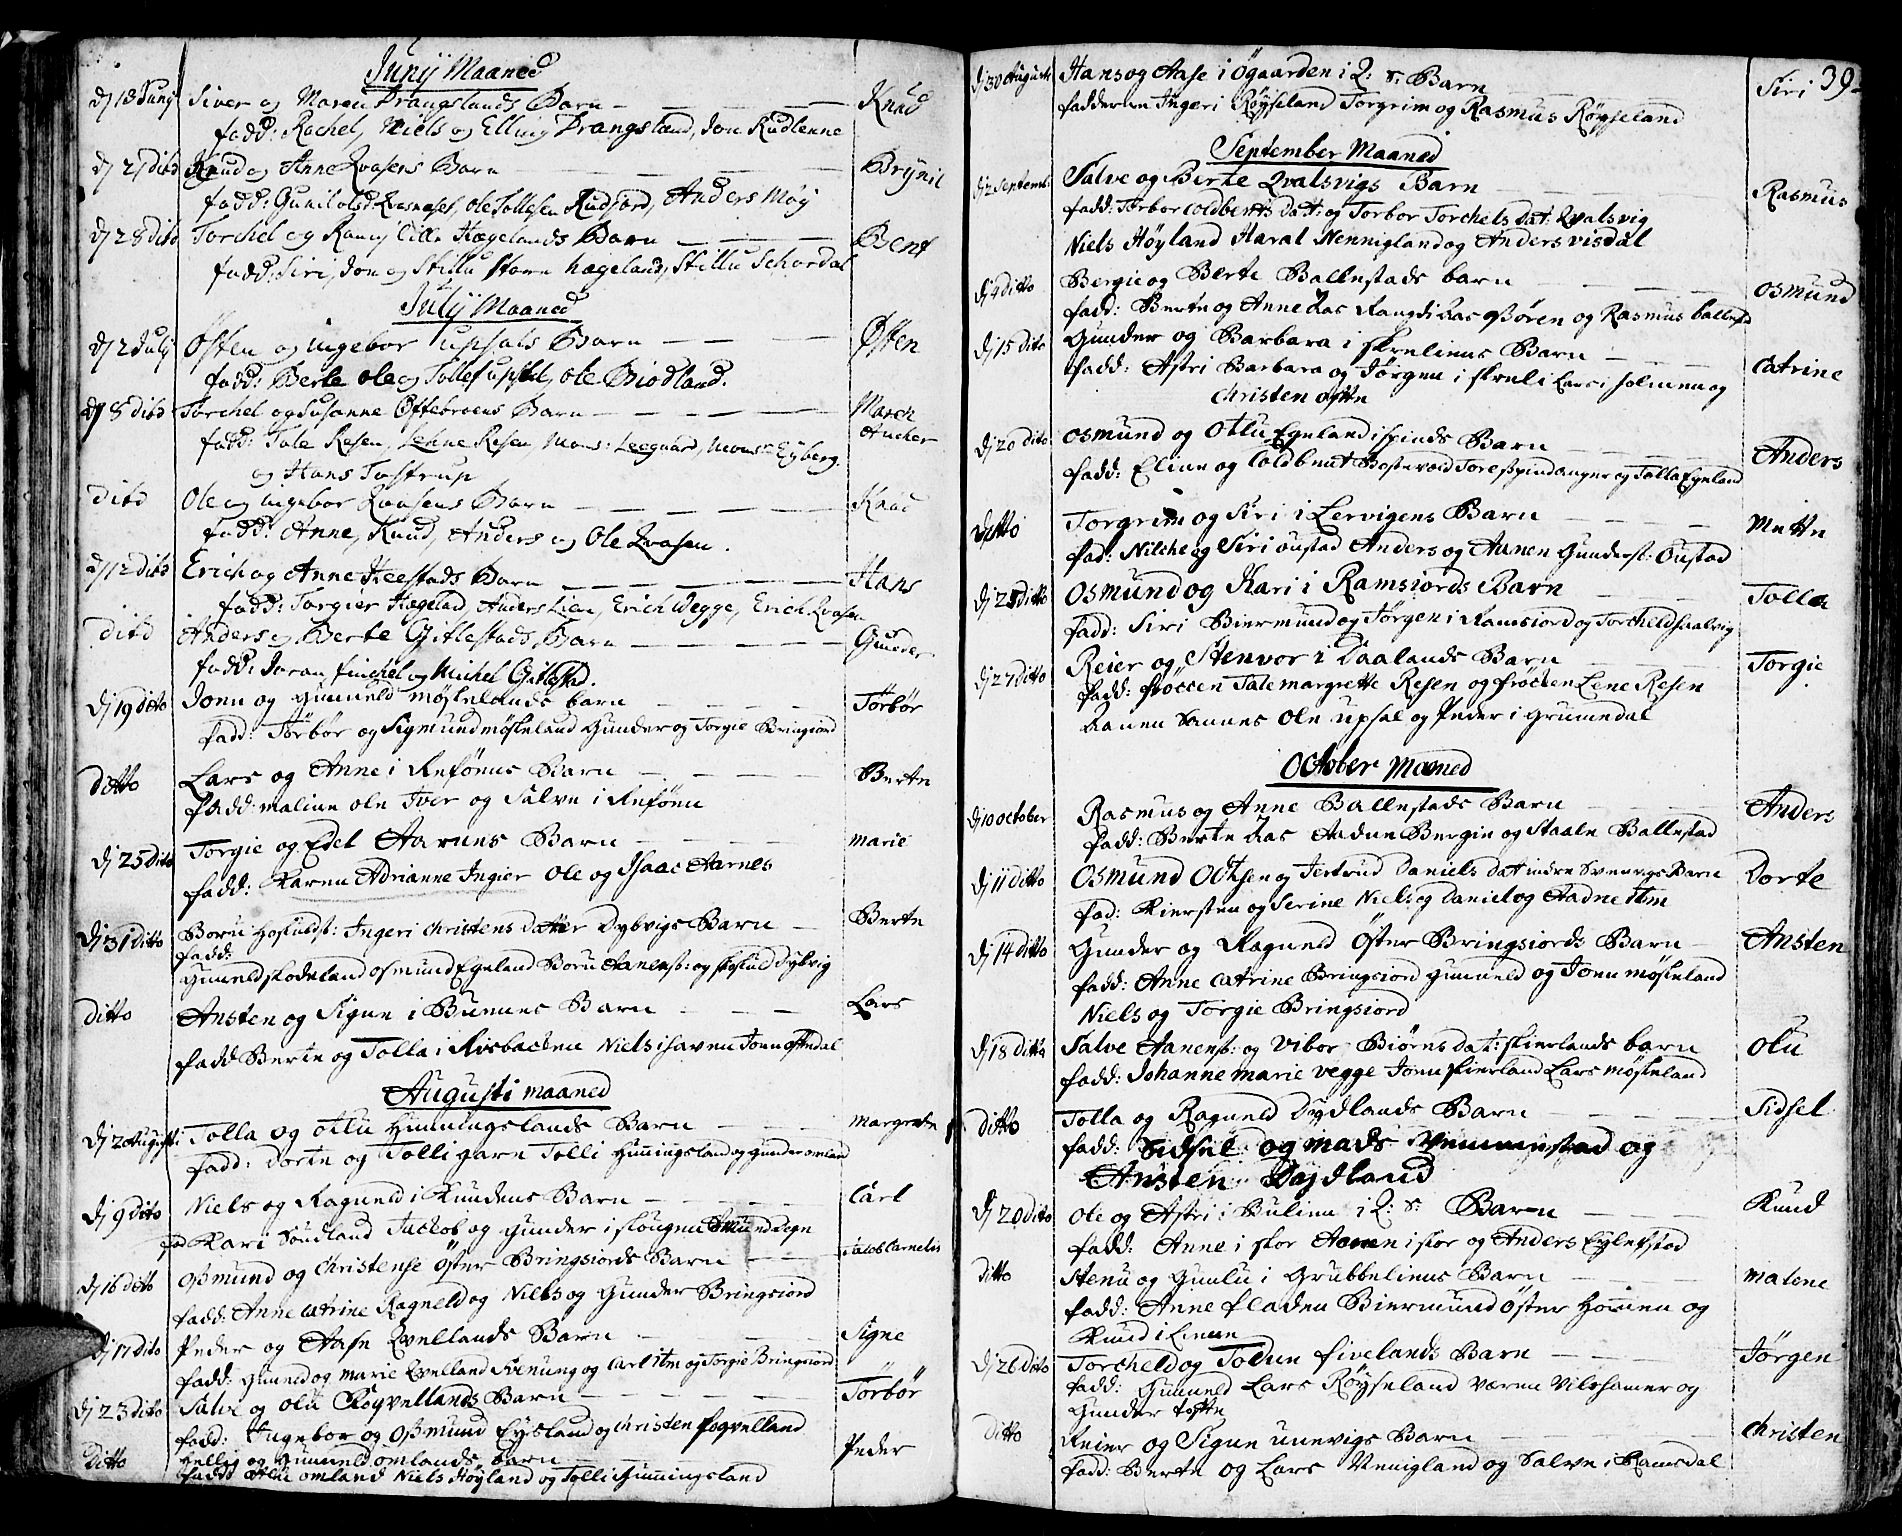 Junij Maaned
dj 18 Junij Siver og Maren Drangslands Barn Knud
fadd: Rachel, Niels og Elling Drangsland, Jon Rudlenne
dj 21 dito Knud og Anne Qvasens Barn Brynil
fadd: Gunil Olsd: Ole Tollefsen Rudjord, Anders Møy
dj 28 dito Torchel og Ranij Lille Hægelands Barn Bent
fadd: Siri, Jon og Stillu Store Hægeland, Stillu
July Maaned
dj 2 July Østen og Ingebor Upsals Barn Østen
fadd: Berte Ole og Tollef Upsal, Ole Biodland.
dj 8 dito Torchel og Susanne Oftebroens Barn March Ancher
fadd: Tale Resen, Lehne Resen, Mons: Leegaard, Monsr Eyberg.
og Hans Tostrup
dito Ole og Ingebor Qvasens Barn Knud
fadd: Anne, Knud, Anders og Ole Qvasen.
dj 12 dito Erich og Anne Heestads Barn Hans
fadd: Torgier Hægelad, Anders Lien, Erich Vegge, Erich Qvasen
dito Anders og Berte Gitlestads Barn Gunder
fadd: Joran, finchel og Michel Gitlestad.
dj 19 ditto Jonn og Gunneld Møskelands barn Torbør
fadd: Törbör og Sigmund Møskeland Gunder og Torgie Bringsiord
ditto Lars og Anne i Refönns Barn Berte
fadd: Maline Ole Iver og Salve i Refönn
dj 25 dito Torgie og Edel Aarnes Barn Marie
fadd: Karen Adrianne Ingier Ole og Isaac Aarnes
dj 31 ditto Boru Hoskulds: Ingeri Christens datter Dybvigs Barn Berte
fadd:
Gunneld Skodeland Osmund Egeland Boru Aanens: og Hoskuld Dybvig
ditto Ansten og Sigun i Bunnes Barn Lars
fadd Berte og Tolla i Risbacken Niels i Haven Jonn Oftedal
Augusti Maaned
dj 2 Augusti Tolla og Ollu Hummingslands Barn Margrete
fadd: Dorte og Tolligarn Tolli Humingsland og Gunder Omland
dj 9 dito Niels og Ragneld i Kundens Barn Carl
fad Kari Sondland Jackob og Gunder i Skougen Amund Degn
dj 16 ditto Osmund og Christense Öster Bringsiords Barn Jacob Cornelis
fadd: Anne Catrine Ragneld og Niels og Gunder Bringsiord
dj 17 dito Peder og Aase Qvellands Barn Signe
fadd: Gunneld og Marie Qvelland Svenung og Carl itm og Torgie Bringsiord
dj 23 ditto Salve og Olu Röyvellands Barn Torbör
fadd: Ingebor og Osmund Eysland og Christen fogvelland
Ditto Hellig og Gunneld Omlands barn Peder
fadd: Olu Omland Niels Höyland og Tolli Hummingsland
39
dj 30 Augusti Hans og Aase i Øgaarden i Q: S: Barn Siri
faddere Ingeri Röyseland Torgrim og Rasmus Röyseland
September Maaned
dj 2 Septemb Salve og Berte Qvalsvigs Barn Rasmus
fadd: Torbor Coldbents dat: og Torbor Torchels dat: Qvalsvig
Niels Höyland Haral Nennigland og Anders Visdal
dj 4 ditto Bergie og Berte Ballestads barn Osmund
fadd: Berte og Anne Aas Rangdi Aas Søren og Rasmus Ballestad
dj 15 dito Gunder og Barbara i Skreliens Barn Catrine
fadd: Astri Barbara og Jørgen i Skreli Lars i Holmen og
Christen Ofte
dj 20 dito Osmund og Ollu Egeland i Spinds Barn Anders
fadd: Eline og Coldbent Bostevold Tore Spindanger og Tolla Egeland
ditto Torgrim og Siri i Lervigens Barn Mette
fad: Nilche og Siri Oustad Anders og Aanen Gunders: Oustad
dj 25 ditto Osmund og Kari i Ramsiords Barn Tolla
fadd: Siri Biermund og Jørgen i Ramsiord og Torcheld Haalvig
dj 27 ditto Reier og Stenvor i Daalands Barn Torgie
fadd: fröcken Tale Margrette Resen og fröcken Lene Resen
Aanen Sannes Ole Upsal og Peder i Grumedal
October Maaned
dj 10 October Rasmus og Anne Ballestads Barn Anders
fadd: Berte Aas Aadne Bergie og Staale Ballestad
dj 11 ditto Osmund Ollsen og Jertrud Daniels dat indre Svennevigs Barn Dorte
fad: Kiersten og Serine Niels og Daniel og Aadne itm
dj 14 ditto Gunder og Ragneld Öster Bringsiords Barn Ansten
fadd: Anne Catrine Bringsiord Gunneld og Jonn Möskeland
Niels og Torgie Bringsiord
dj 18 ditto Salve Aanens: og Vibor Biörns dat: Skierlands barn Olu
fadd: Johanne Marie Vegge Jonn Skierland Lars Möskeland
ditto Tolla og Ragneld Dydlands Barn Sidsel
fadd: Sidsel og Mads Vemmestad og
Ansten Dydland
dj 20 dito Ole og Astri i Bulien i Q: S: Barn Knud
fadd: Anne i Skor Aanen i Skor og Anders Eyletstad
ditto Stenu og Gunlu i Grubbeliens Barn Malene
fadd: Anne fladen Biermund Öster Hommen og
Knud i Lienn
dj 26 dito Torcheld og Todun fivelands Barn Jørgen
fadd: Gunneld Lars Röyseland Væren Vilshamer og
Gunder Ofte
ditto Reier og Sigun Unevigs Barn Christen
fadd: Berte og Lars Vennigland og Salve i Ramsdal